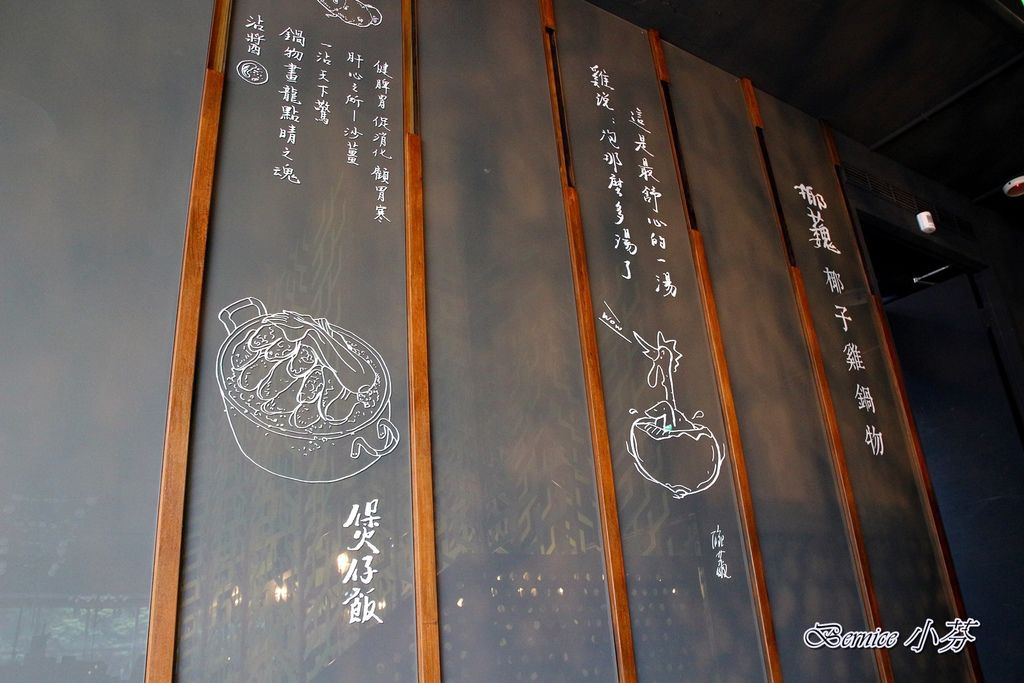 椰蘶 椰子雞鍋物
這是最舒心的一湯
雞說：泡那麼多湯了
WOW
椰蘶
健脾胃 促消化 顧胃寒
肝心之所—沙薑
一沾天下驚
鍋物畫龍點睛之魂
沾醬
煲仔飯
Bernice 小芬